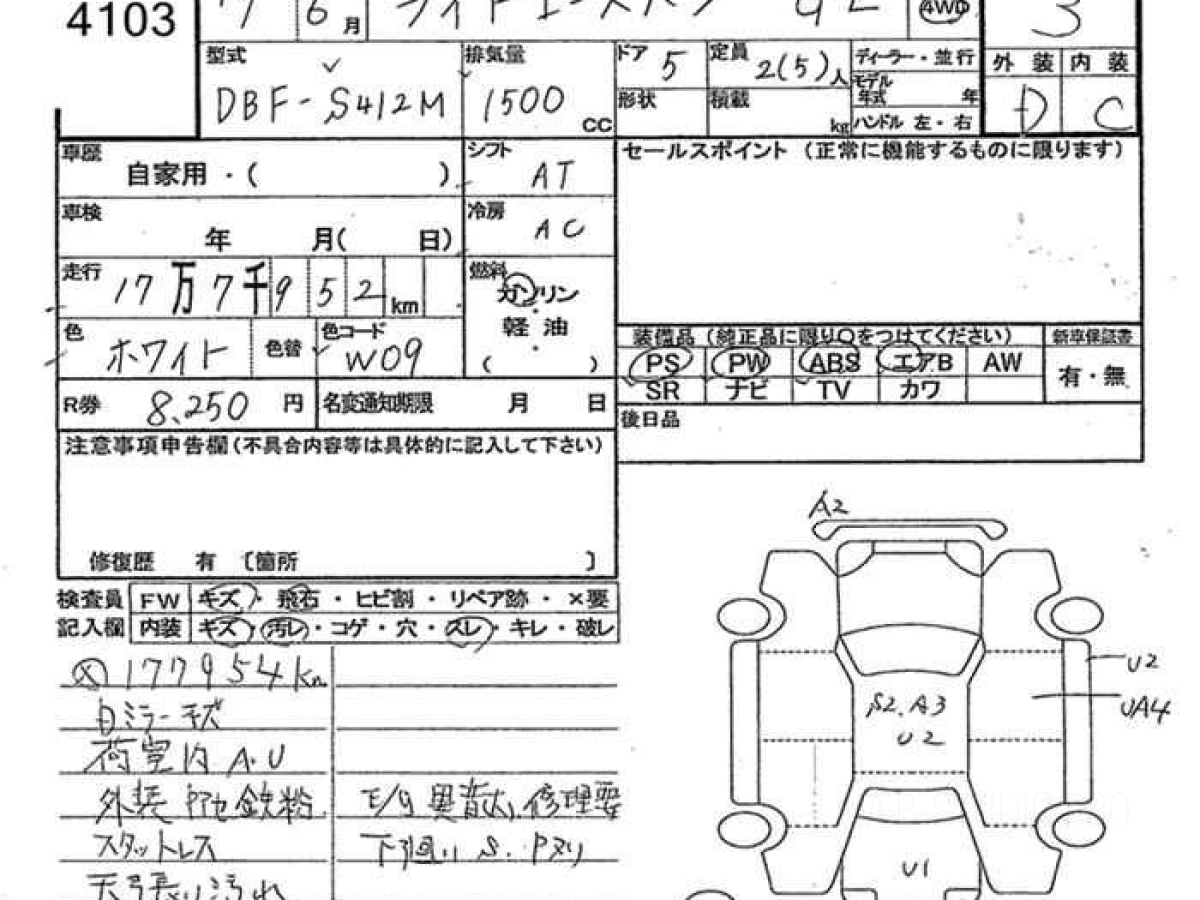 4103
7 6月
ライトエースバン GL 4WD 3
型式 排気量 ドア 5 定員 2(5)人 ディーラー・並行 外装 内装
DBF-S412M 1500 CC 形状 積載 kg モデル年式 年 D C
ハンドル 左・右
車歴 自家用・( ) シフト AT セールスポイント(正常に機能するものに限ります)
車検 年 月( 日) 冷房 AC
走行 17万7千952km 燃料 ガソリン
軽油
( )
色 ホワイト 色替 色コード W09
装備品(純正品に限り○をつけてください) 新車保証書
PS PW ABS エアB AW 有・無
SR ナビ TV カワ
R券 8,250円 名変通知期限 月 日
後日品
注意事項申告欄(不具合内容等は具体的に記入して下さい)
修復歴 有 〔箇所 〕
検査員 FW キズ・飛石・ヒビ割・リペア跡・×要
記入欄 内装 キズ・汚レ・コゲ・穴・スレ・キレ・破レ
177954km
ミラーキズ
荷室内 A.U
外装 鉄粉
スタットレス
天張り汚れ
E/g 異音大 修理要
下廻り S.Pヌリ
A2
U2
UA4
S2.A3
U2
U1